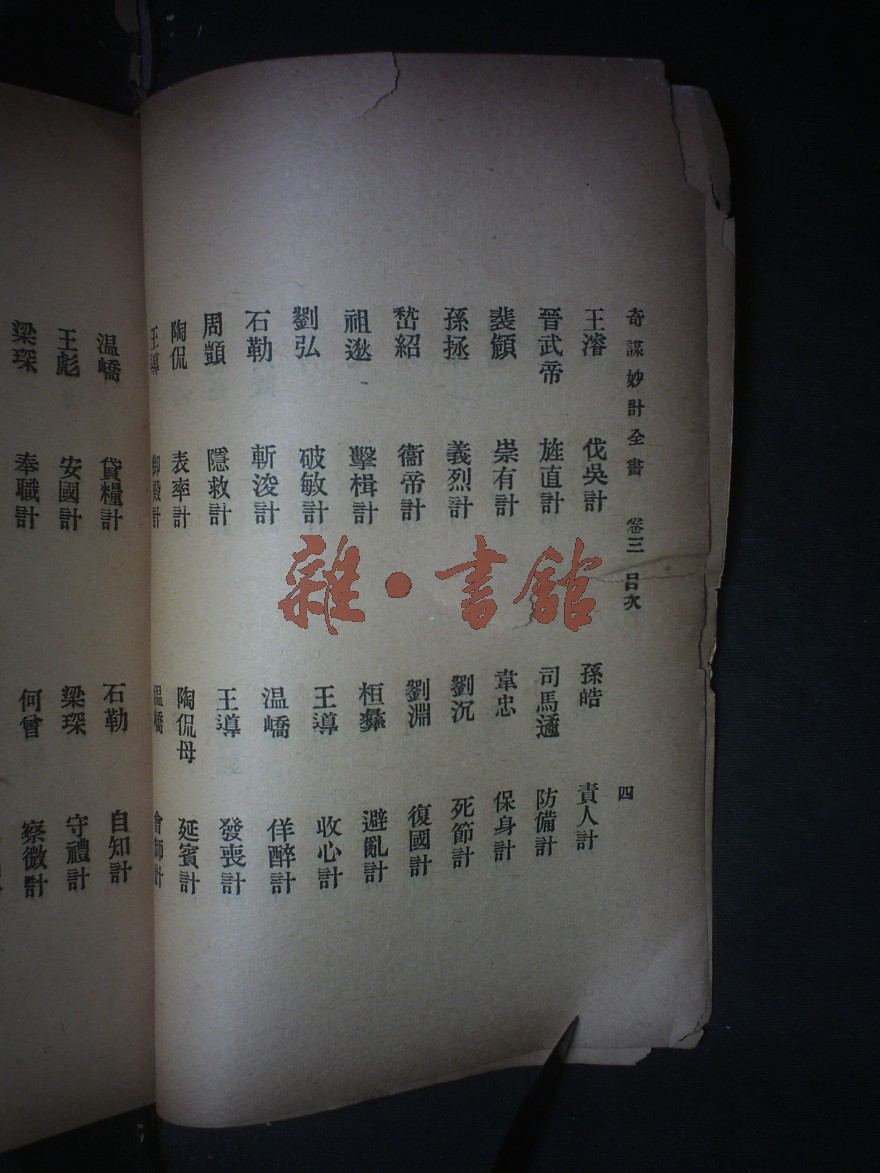 奇謀妙計全書 卷三 目次 四
王濬 伐吳計 孫皓 責人計
晉武帝 旌直計 司馬遹 防備計
裴頠 崇有計 韋忠 保身計
孫拯 義烈計 劉沉 死節計
嵇紹 衞帝計 劉淵 復國計
祖逖 擊楫計 桓彝 避亂計
劉弘 破敏計 王導 收心計
石勒 斬浚計 温嶠 佯醉計
周顗 隱救計 王導 發喪計
陶侃 表率計 陶侃母 延賓計
王導 御殿計 温嶠 會師計
温嶠 貸糧計 石勒 自知計
王彪 安國計 梁琛 守禮計
梁琛 奉職計 何曾 察微計
雜·書館